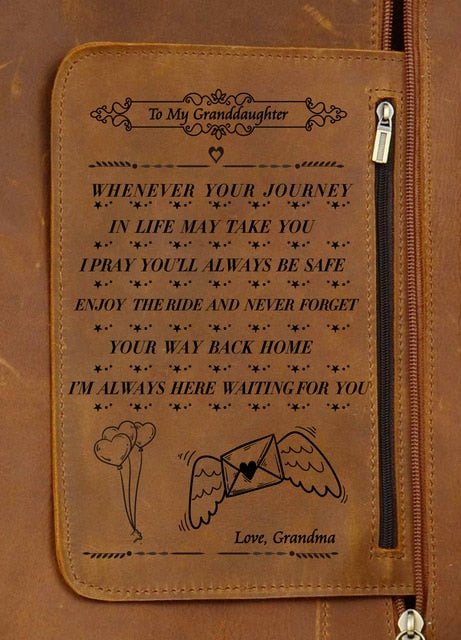 To My Granddaughter
WHENEVER YOUR JOURNEY
IN LIFE MAY TAKE YOU
I PRAY YOU'LL ALWAYS BE SAFE
ENJOY THE RIDE AND NEVER FORGET
YOUR WAY BACK HOME
I'M ALWAYS HERE WAITING FOR YOU
Love, Grandma